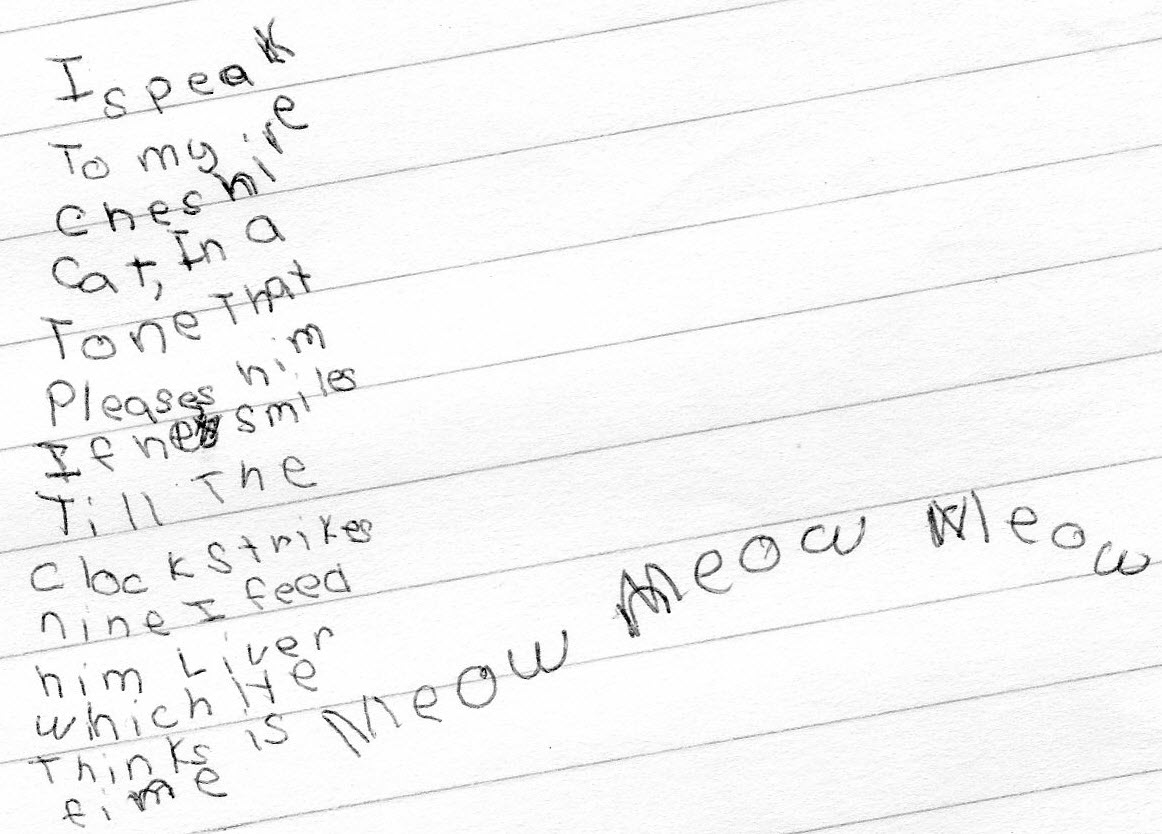 I speak
To my
Cheshire
Cat, In a
Tone That
Pleases him
If he smiles
Till The
Clock Strikes
nine I feed
him Liver
which He
Thinks is
fime
Meow Meow Meow